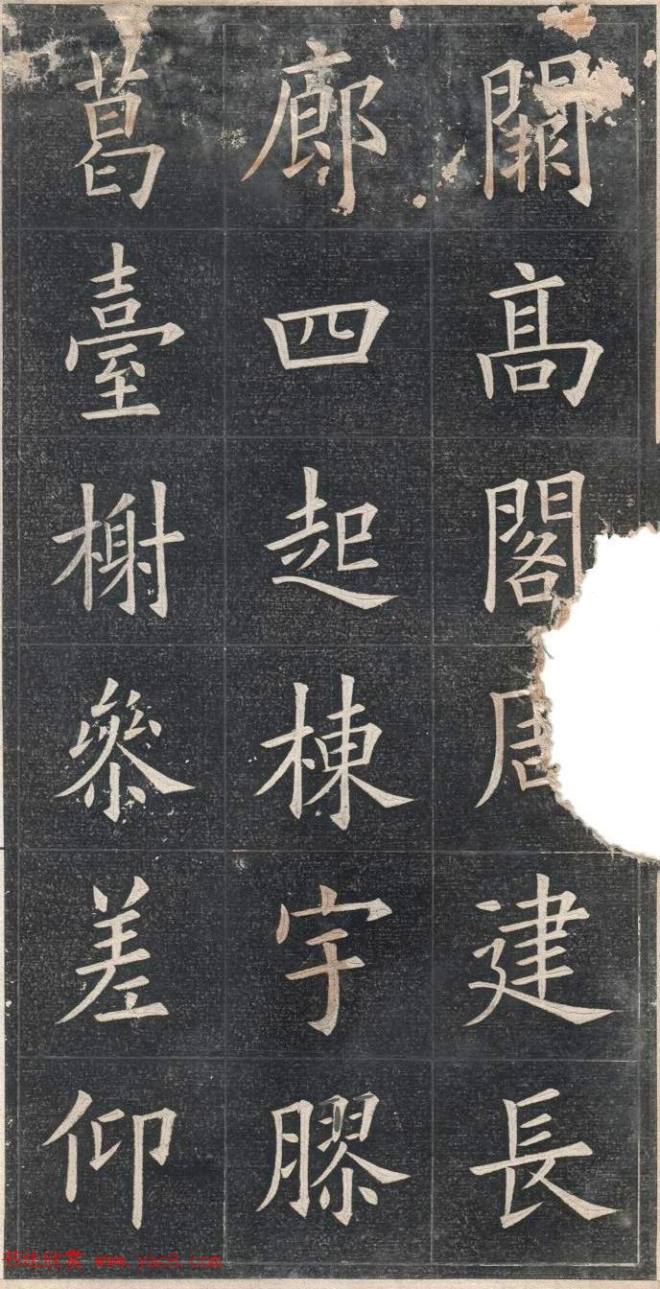 闕高閣周建長
廊四起棟宇膠
葛臺榭叅差仰
书法欣赏 www.yac8.com